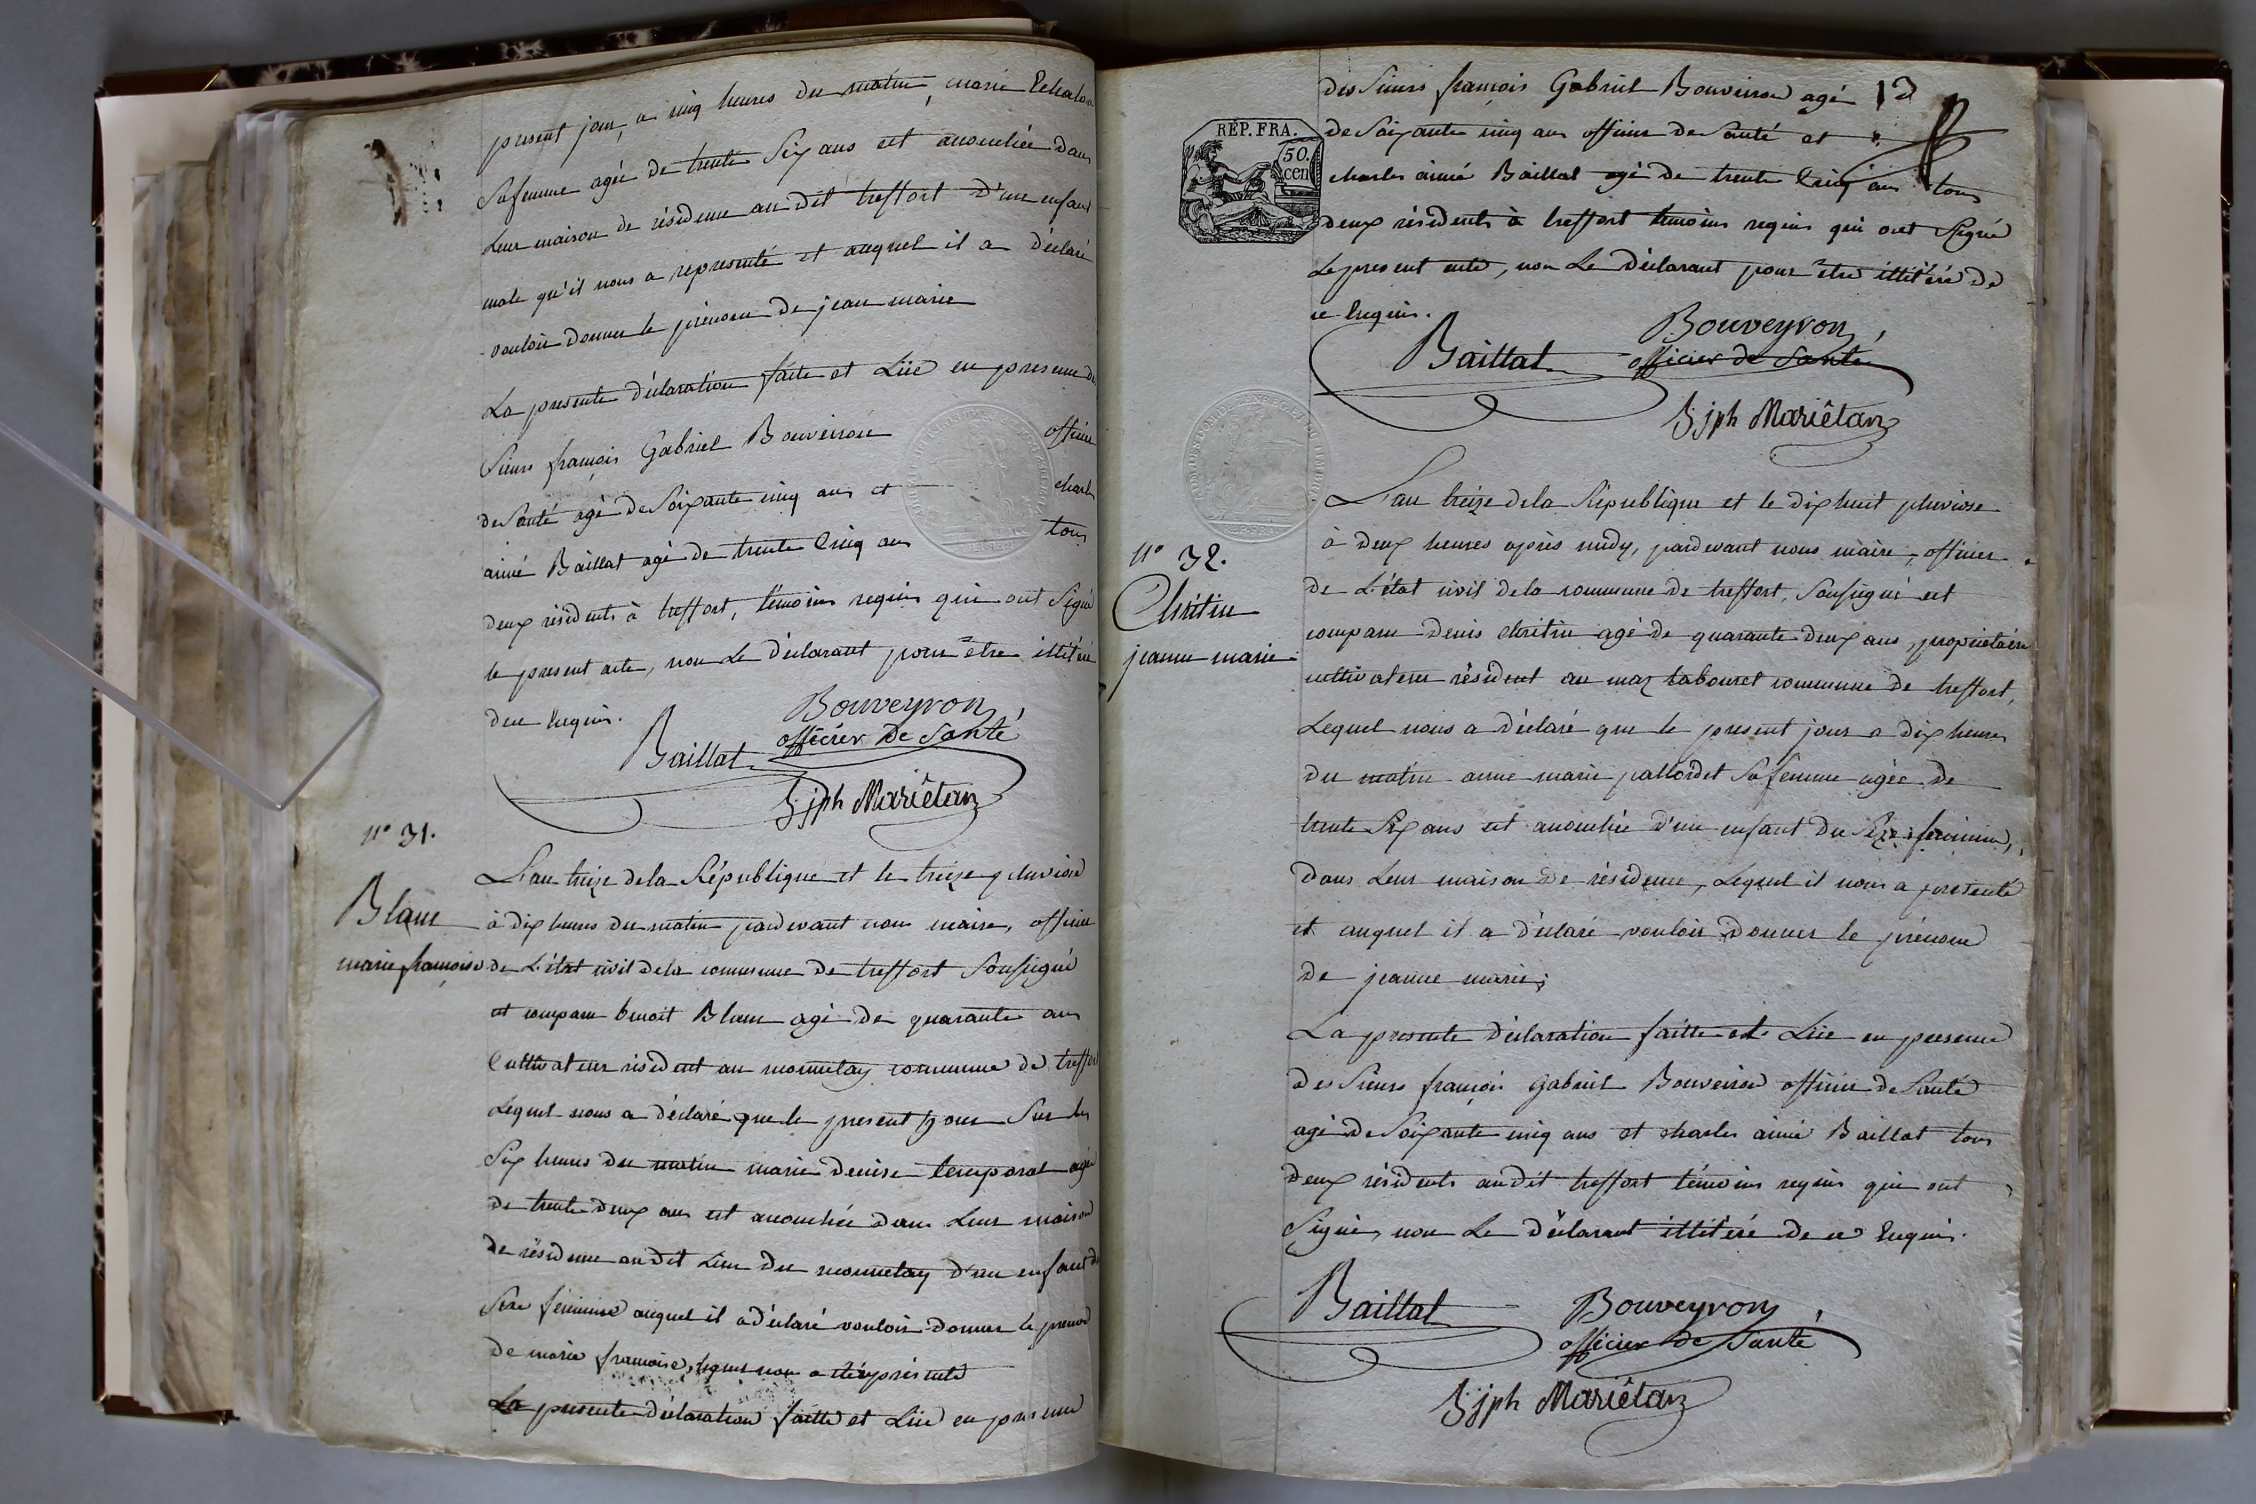 present jour, a cinq heures du matin, marie
sa femme agée de trente six ans est accouchée dans
leur maison de résidence au dit treffort d'un enfant
male qu'il nous a representé et auquel il a déclaré
vouloir donner le prénom de jean marie
La presente déclaration faite et Lüe en presence de
Sieurs françois Gabriel Bouveiron officier
de Santé agé de Soixante cinq ans et charles
aimé Baillat agé de trente Cinq ans tous
deux résidents à treffort, témoins requis qui ont Signé
le present acte, non Le déclarant pour être illitéré
den Enquis.
Bouveyron
officier de Santé
Baillat
jph Mariêtan
N° 31.
Blanc
marie françoise
L'an treize de la République et le treize pluviose
à dix heures du matin pardevant nous maire, officier
de L'état civil de la commune de treffort Soussigné
est comparu benoit Blanc agé de quarante ans
Cultivateur résident au monnetay commune de treffort
Lequel nous a déclaré que le present jour Sur les
Six heures du matin marie denise temporal agée
de trente deux ans est accouchée dans Leur maison
de résidence audit Lieu du monnetay d'un enfant du
Sexe féminin auquel il a déclaré vouloir donner le prenom
de marie françoise, lequel nous a
La presente déclaration faitte et Lüe en presence
12
RÉP. FRA.
50.
cen
des Sieurs françois Gabriel Bouveiron agé
de Soixante cinq ans officier de Santé et
charles aimé Baillat agé de trente Cinq ans tous
deux résidents à treffort témoins requis qui ont Signé
Le present acte, non Le déclarant pour être illitéré de
ce Enquis.
Bouveyron
Baillat officier de Santé
jph Mariêtan
N° 32.
Chrétin
jeanne marie
L'an treize de la République et le dix huit pluviose
à deux heures après midy, pardevant nous maire, officier
de L'état civil de la commune de treffort, Soussigné est
comparu denis chretin agé de quarante deux ans, propriétaire
cultivateur résident au maz tabouret commune de treffort,
Lequel nous a déclaré que le present jour a dix heures
du matin anne marie pallordet Sa femme agée de
trente Six ans est accouchée d'un enfant du Sexe féminin,
dans Leur maison de résidence, Lequel il nous a presenté
et auquel il a déclaré vouloir donner le prénom
de jeanne marie;
La presente déclaration faitte et Lüe en presence
des Sieurs françois Gabriel Bouveiron officier de Santé
agé de Soixante cinq ans et charles aimé Baillat tous
deux résidents audit treffort témoins requis qui ont
Signé, non Le déclarant illitéré de ce Enquis.
Baillat Bouveyron
officier de Santé
jph Mariêtan